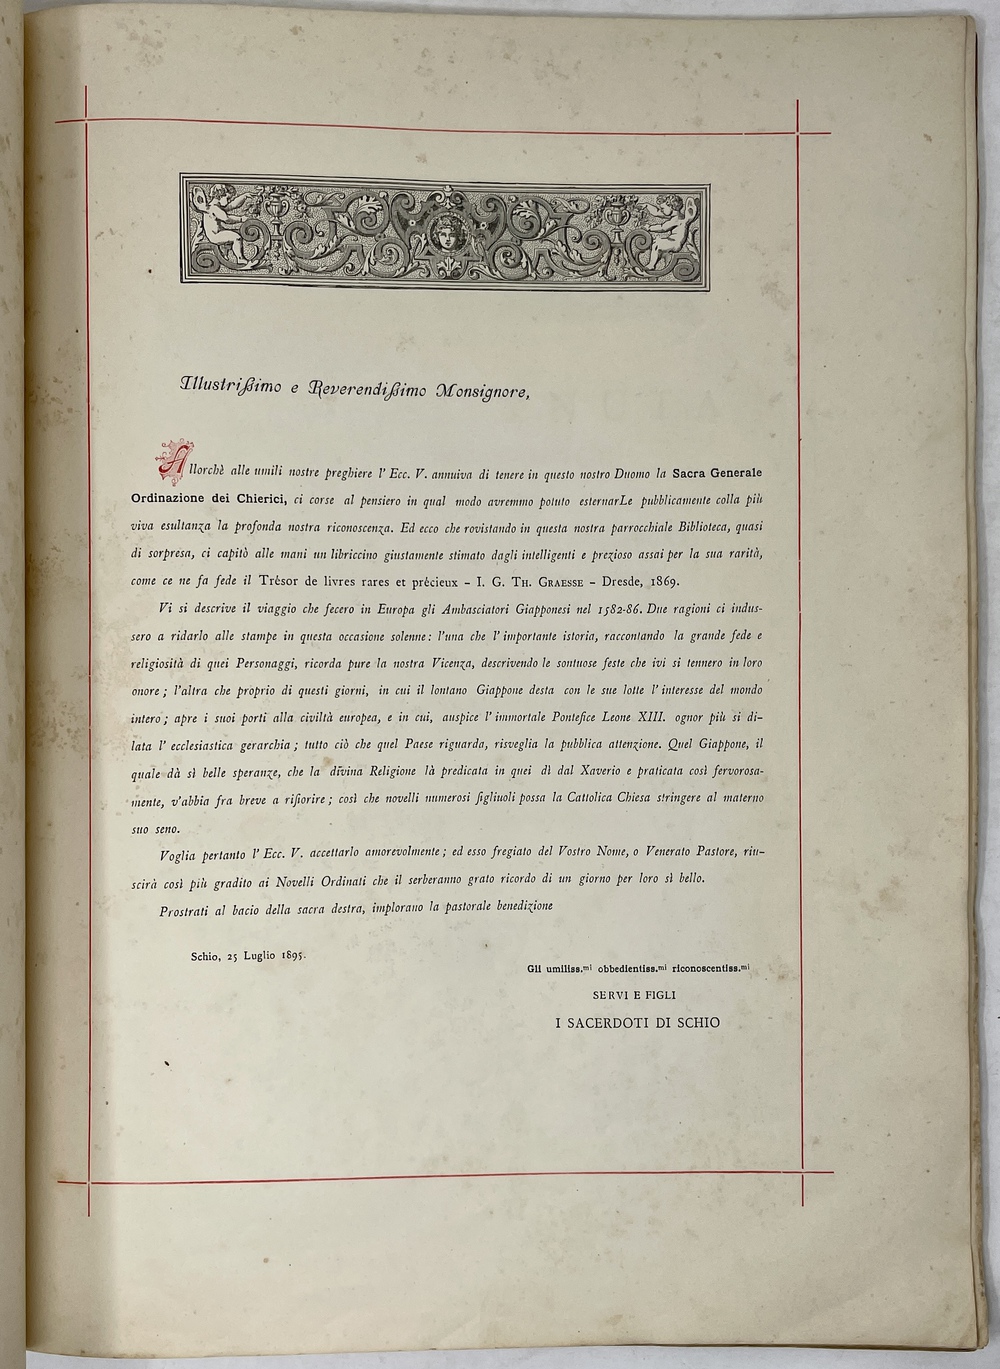 Illustrissimo e Reverendissimo Monsignore,
Allorchè alle umili nostre preghiere l' Ecc. V. annuiva di tenere in questo nostro Duomo la Sacra Generale
Ordinazione dei Chierici, ci corse al pensiero in qual modo avremmo potuto esternarLe pubblicamente colla più
viva esultanza la profonda nostra riconoscenza. Ed ecco che rovistando in questa nostra parrocchiale Biblioteca, quasi
di sorpresa, ci capitò alle mani un libriccino giustamente stimato dagli intelligenti e prezioso assai per la sua rarità,
come ce ne fa fede il Trésor de livres rares et précieux - I. G. Th. Graesse - Dresde, 1869.
Vi si descrive il viaggio che fecero in Europa gli Ambasciatori Giapponesi nel 1582-86. Due ragioni ci indus-
sero a ridarlo alle stampe in questa occasione solenne: l'una che l' importante istoria, raccontando la grande fede e
religiosità di quei Personaggi, ricorda pure la nostra Vicenza, descrivendo le sontuose feste che ivi si tennero in loro
onore; l'altra che proprio di questi giorni, in cui il lontano Giappone desta con le sue lotte l' interesse del mondo
intero; apre i suoi porti alla civiltà europea, e in cui, auspice l' immortale Pontefice Leone XIII. ognor più si di-
lata l' ecclesiastica gerarchia; tutto ciò che quel Paese riguarda, risveglia la pubblica attenzione. Quel Giappone, il
quale dà sì belle speranze, che la divina Religione là predicata in quei dì dal Xaverio e praticata così fervorosa-
mente, v'abbia fra breve a rifiorire; così che novelli numerosi figliuoli possa la Cattolica Chiesa stringere al materno
suo seno.
Voglia pertanto l' Ecc. V. accettarlo amorevolmente; ed esso fregiato del Vostro Nome, o Venerato Pastore, riu-
scirà così più gradito ai Novelli Ordinati che il serberanno grato ricordo di un giorno per loro sì bello.
Prostrati al bacio della sacra destra, implorano la pastorale benedizione
Schio, 25 Luglio 1895.
Gli umiliss.mi obbedientiss.mi riconoscentiss.mi
SERVI E FIGLI
I SACERDOTI DI SCHIO